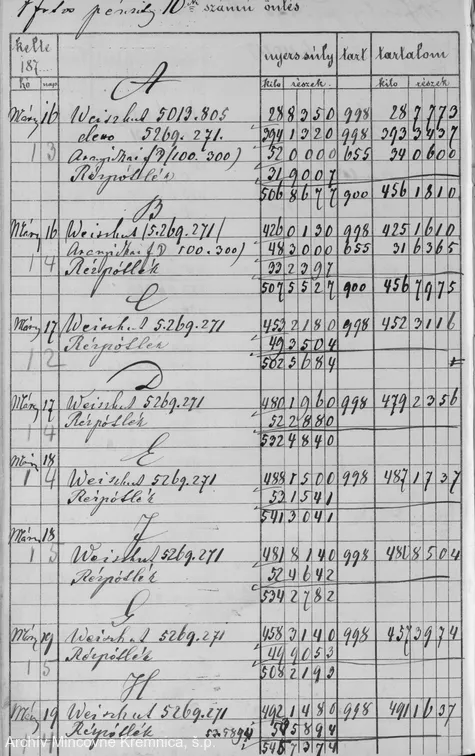 számú öntés
kelte nyers súly tart tartalom
187...
hó nap kiló részek kiló részek
A
Márz 16 Weiszhut 5013.805 28 8350 998 28 7773
5269.271. 394 1320 998 393 3437
13 52 0000 655 34 0600
Rézpótlék 31 9007
506 8677 900 456 1810
B
Márz 16 Weiszhut (5269.271) 426 0130 998 425 1610
14 48 3000 655 31 6365
Rézpótlék 33 2397
507 5527 900 456 7975
C
Márz 17 Weiszhut 5269.271 453 2180 998 452 3116
12 Rézpótlék 49 3504
502 5684
D
Márz 17 Weiszhut 5269.271 480 1960 998 479 2356
14 Rézpótlék 52 2880
532 4840
E
Márz 18
14 Weiszhut 5269.271 488 1500 998 487 1737
Rézpótlék 53 1541
541 3041
Márz 18
15 Weiszhut 5269.271 481 8140 998
Rézpótlék 52 4642
534 2782
G
Márz 19 Weiszhut 5269.271 458 3140 998 457 3974
15 Rézpótlék 49 9053
508 2193
H
Márz 19 Weiszhut 5269.271 492 1480 998 491 1637
Rézpótlék
Archív Mincovne Kremnica, š.p.